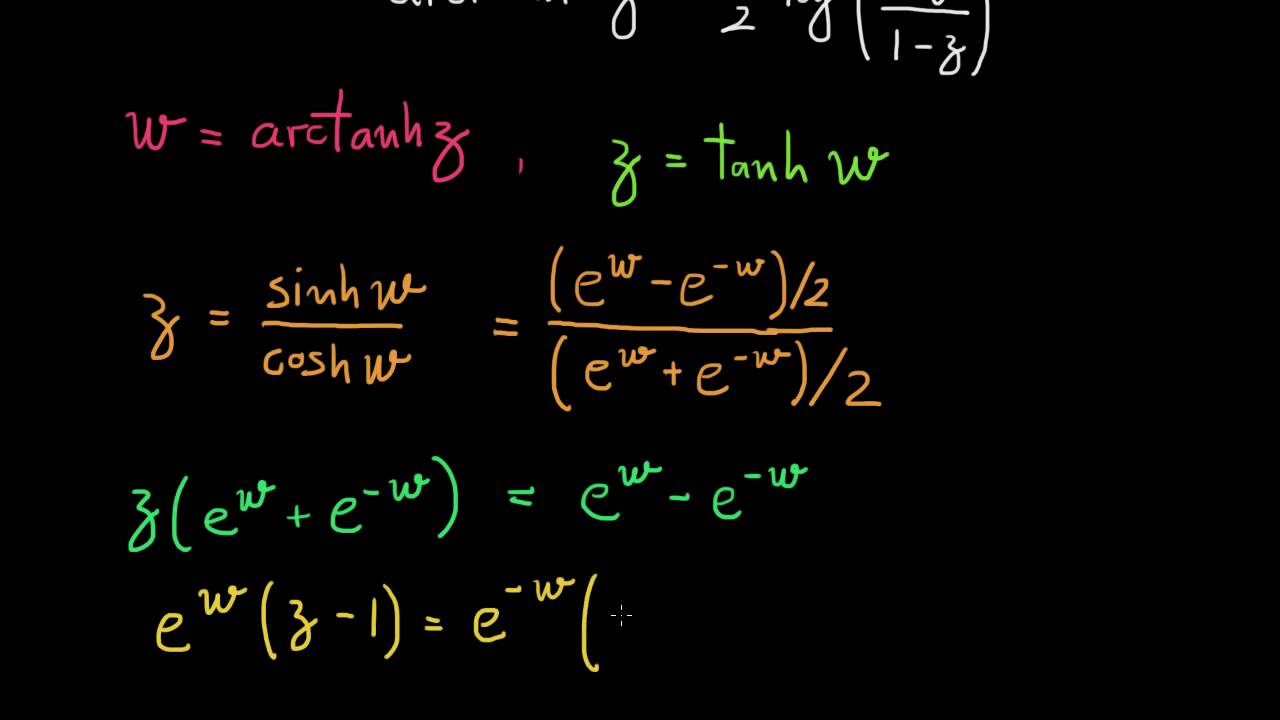 z 2 log ( / 1 - z )
w = arctanh z , z = tanh w
z = sinh w / cosh w = (e^w - e^-w)/2 / (e^w + e^-w)/2
z(e^w + e^-w) = e^w - e^-w
e^w (z - 1) = e^-w (